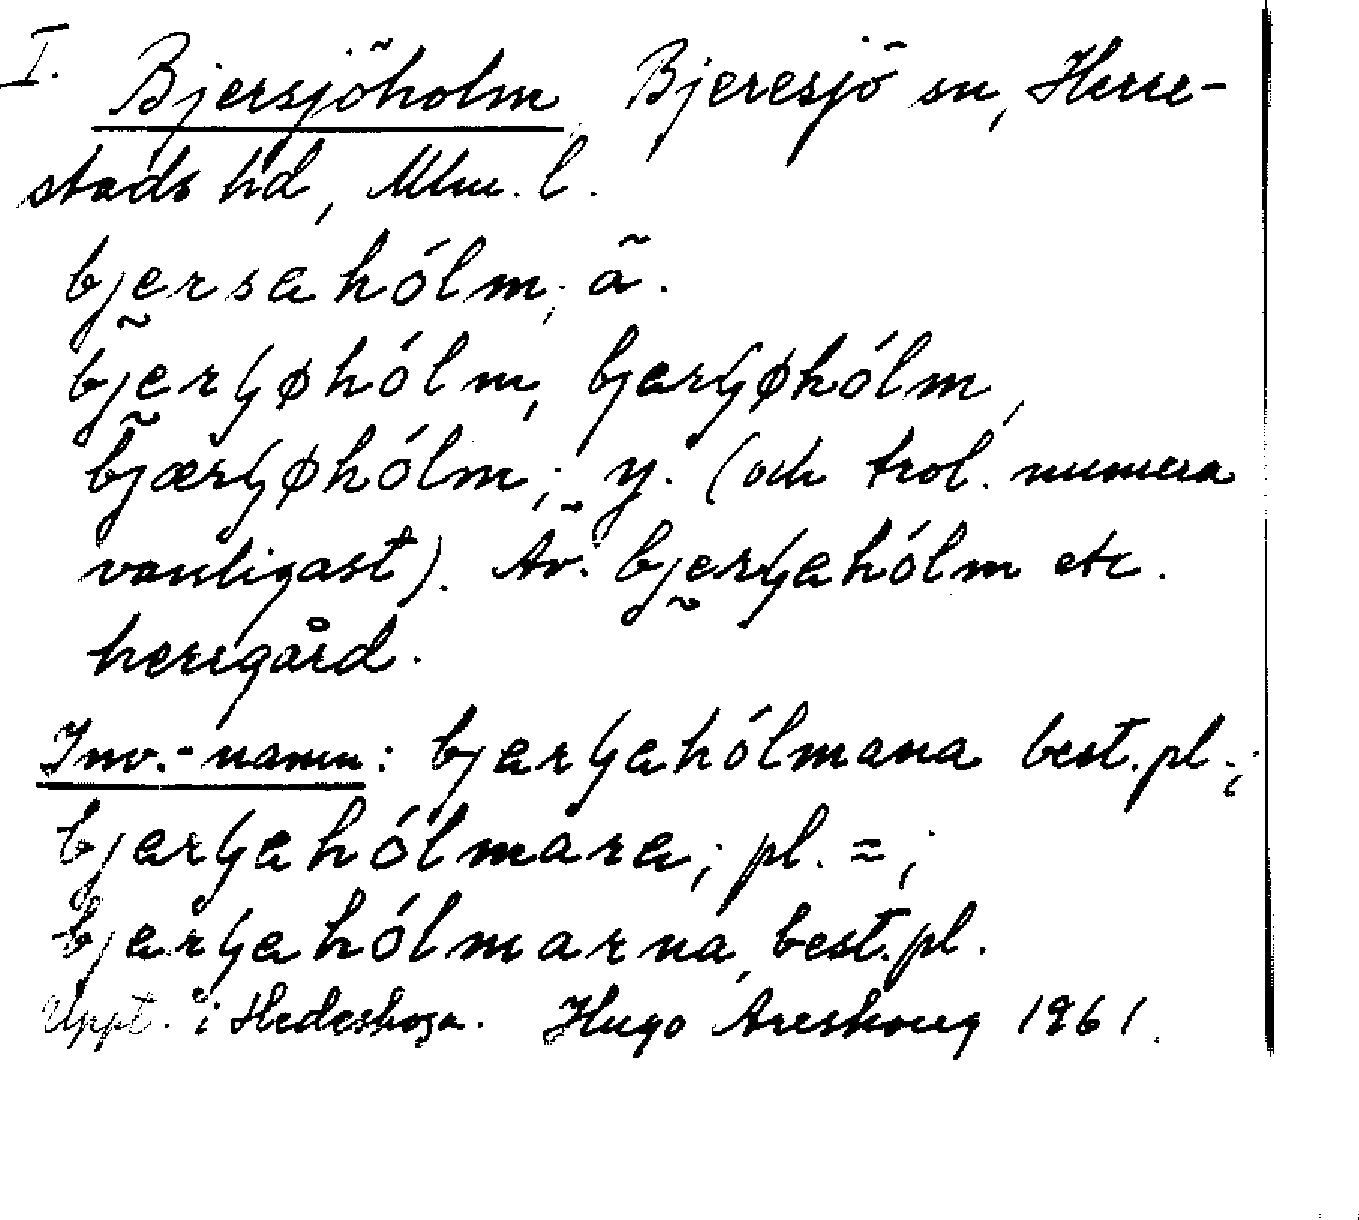 I. Bjersjöholm, Bjeresjö sn, Herre-
stads hd, Mlm. l.
bjersahólm; ã.
bjerʃøhólm, bjarʃøhólm,
bjærʃøhólm; y. (och trol. numera
vanligast). Äv. bjerʃahólm etc.
herrgård.
Inv.-namn: bjarʃahólmana best. pl.;
bjarʃahólmara; pl. =;
bjarʃahólmarna, best. pl.
Uppt. i Hedeskoga. Hugo Areskoug 1961.